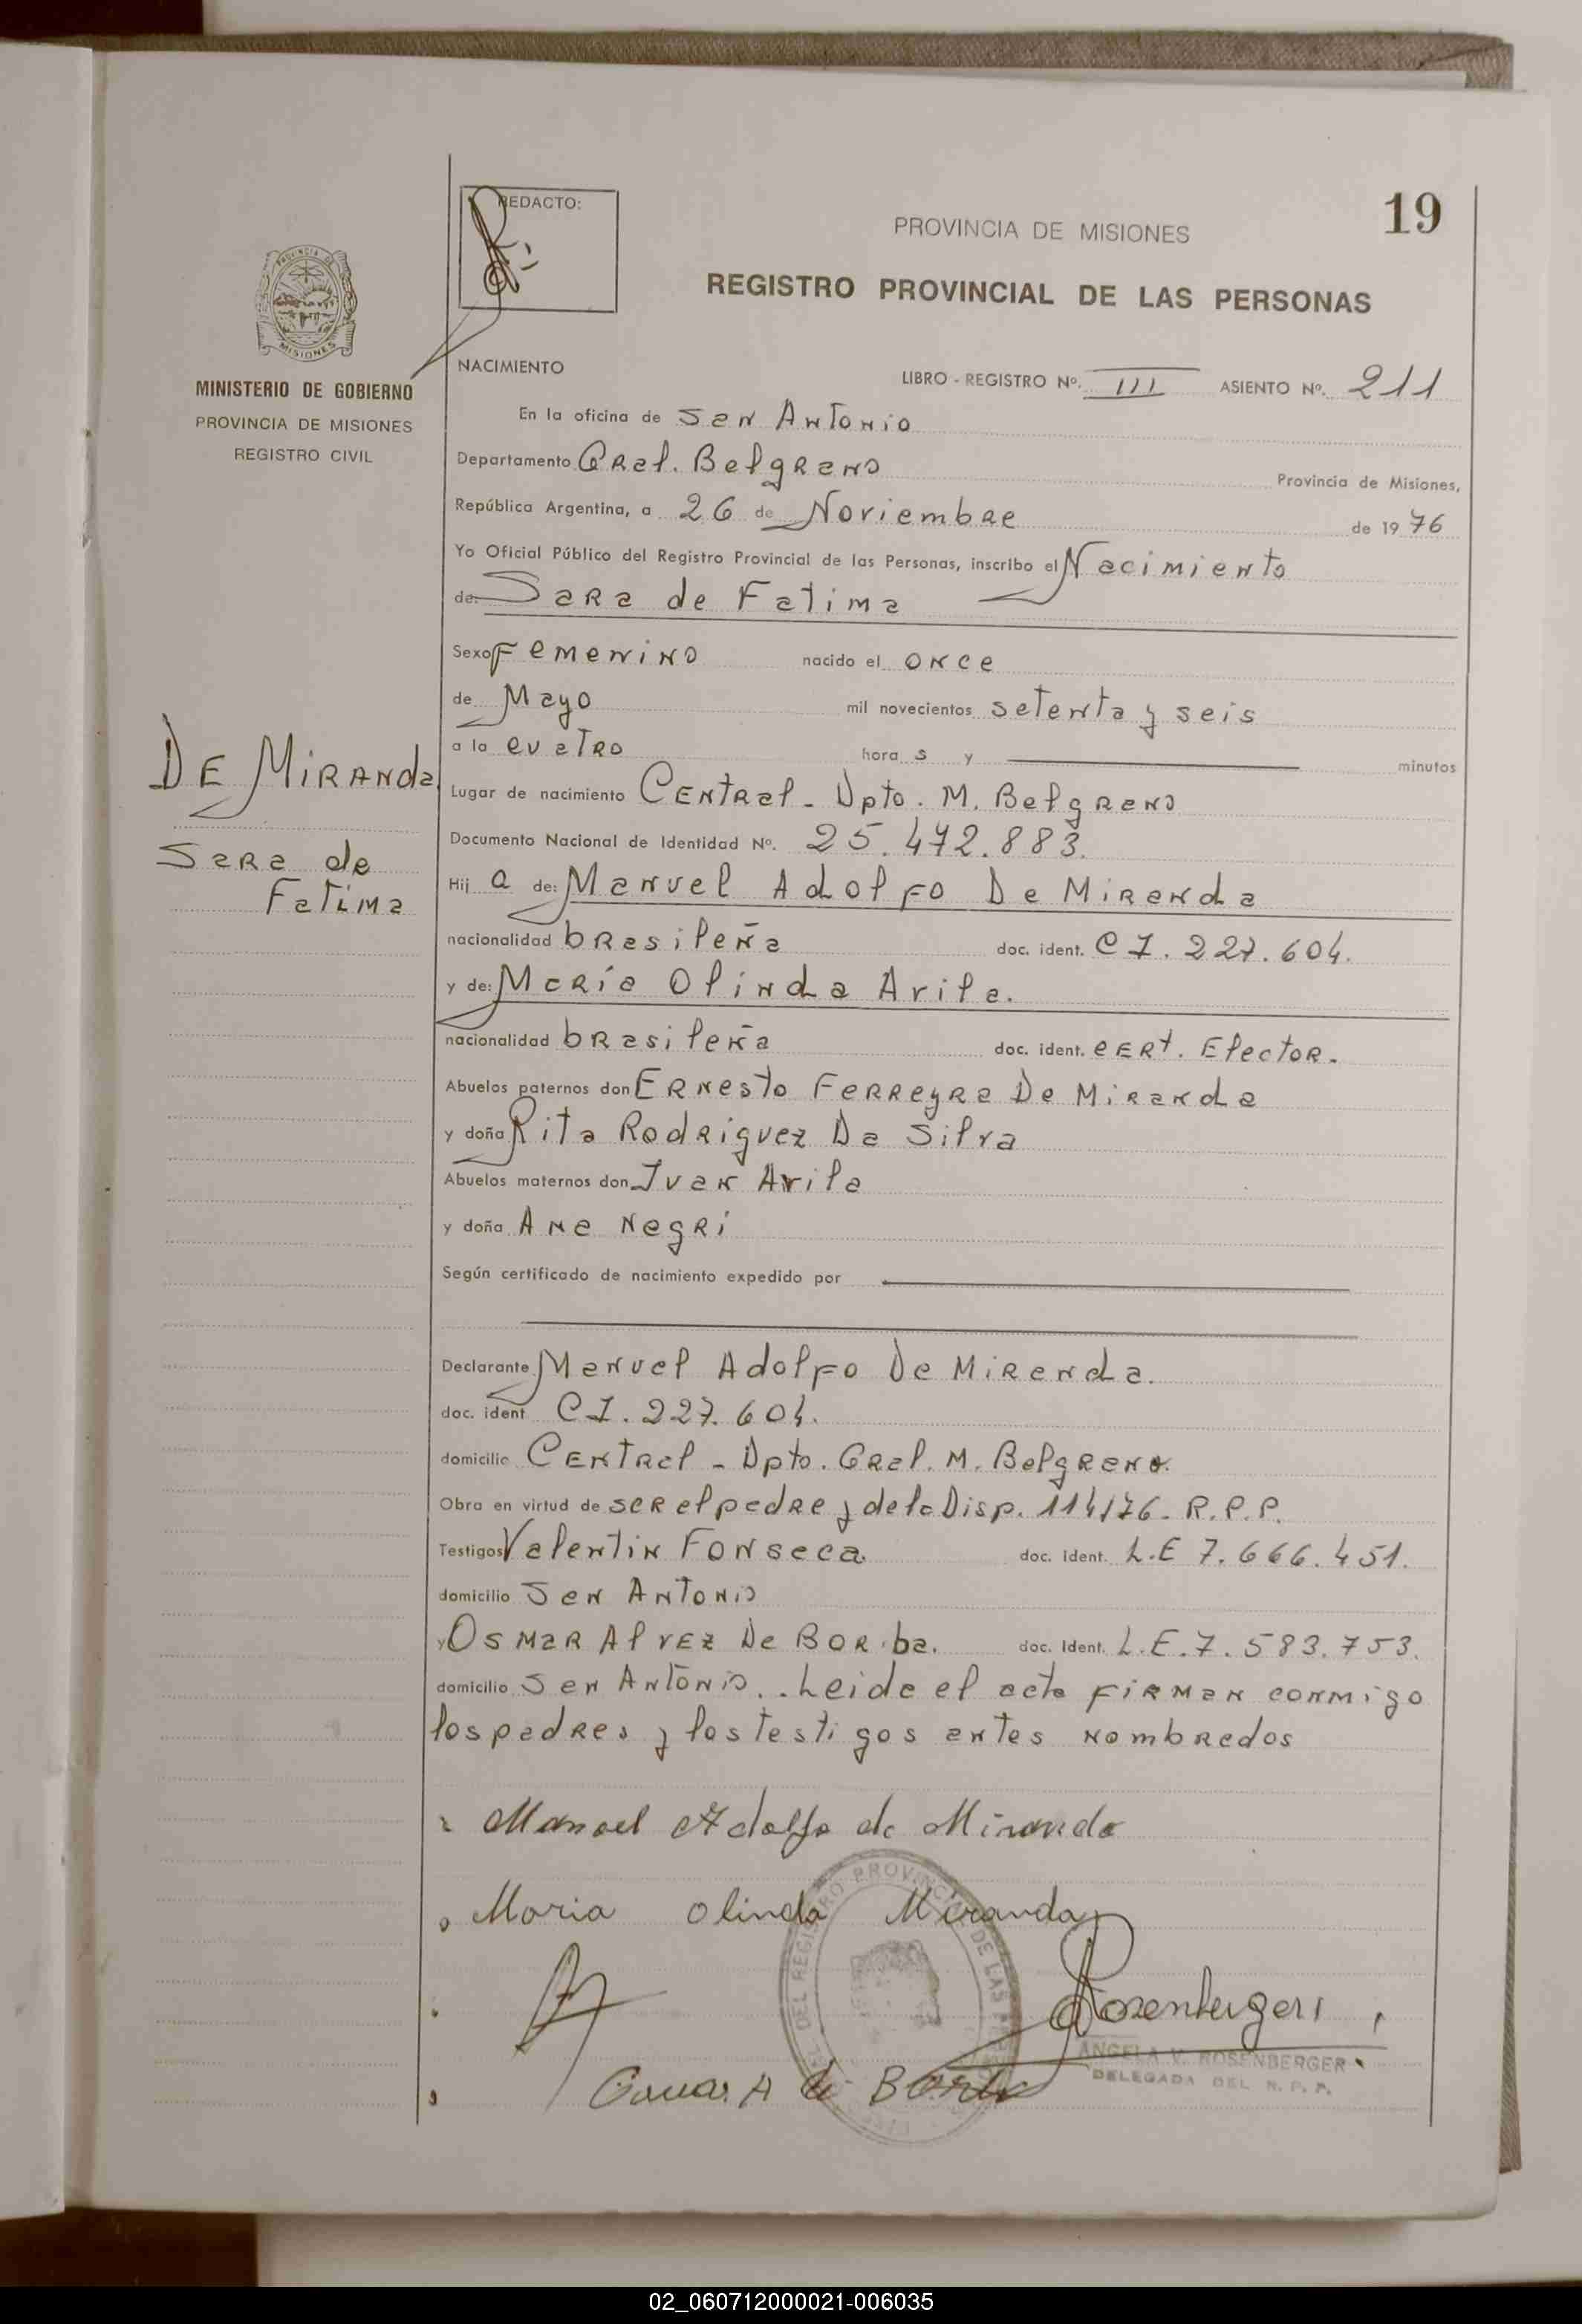 19
REDACTO:
PROVINCIA DE MISIONES
REGISTRO PROVINCIAL DE LAS PERSONAS
PROVINCIA DE
MISIONES
MINISTERIO DE GOBIERNO
PROVINCIA DE MISIONES
REGISTRO CIVIL
NACIMIENTO
LIBRO - REGISTRO Nº. III ASIENTO Nº. 211
En la oficina de San Antonio
Departamento Gral. Belgrano Provincia de Misiones,
República Argentina, a 26 de Noviembre de 1976
Yo Oficial Público del Registro Provincial de las Personas, inscribo el Nacimiento
de: Sara de Fatima
Sexo Femenino nacido el once
de Mayo mil novecientos setenta y seis
a la cuatro hora s y minutos
DE Miranda
Sara de
Fatima
Lugar de nacimiento Central - Dpto. M. Belgrano
Documento Nacional de Identidad Nº. 25.472.883.
Hij a de: Manuel Adolfo De Miranda
nacionalidad brasileña doc. ident. CI. 227.604.
y de: María Olinda Avila.
nacionalidad brasileña doc. ident. cert. Elector.
Abuelos paternos don Ernesto Ferreyra De Miranda
y doña Rita Rodriguez Da Silva
Abuelos maternos don Ivan Avila
y doña Ana Negri
Según certificado de nacimiento expedido por
Declarante Manuel Adolfo De Miranda.
doc. ident CI. 227.604.
domicilio Central - Dpto. Gral. M. Belgrano.
Obra en virtud de ser el padre y de la Disp. 114/76. R.P.P.
Testigos Valentin Fonseca. doc. ident. L.E 7.666.451.
domicilio San Antonio
y Osmar Alvez De Boriba. doc. Ident. L.E.7.583.753.
domicilio San Antonio.. Leida el acta firman conmigo
los padres y los testigos antes nombrados
Manoel Adolfo de Miranda
Maria olinda Miranda
DEL REGISTRO PROVINCIAL DE LAS
Rosenberger
ANGELA V. ROSENBERGER
DELEGADA DEL R. P. P.
A de
02_060712000021-006035